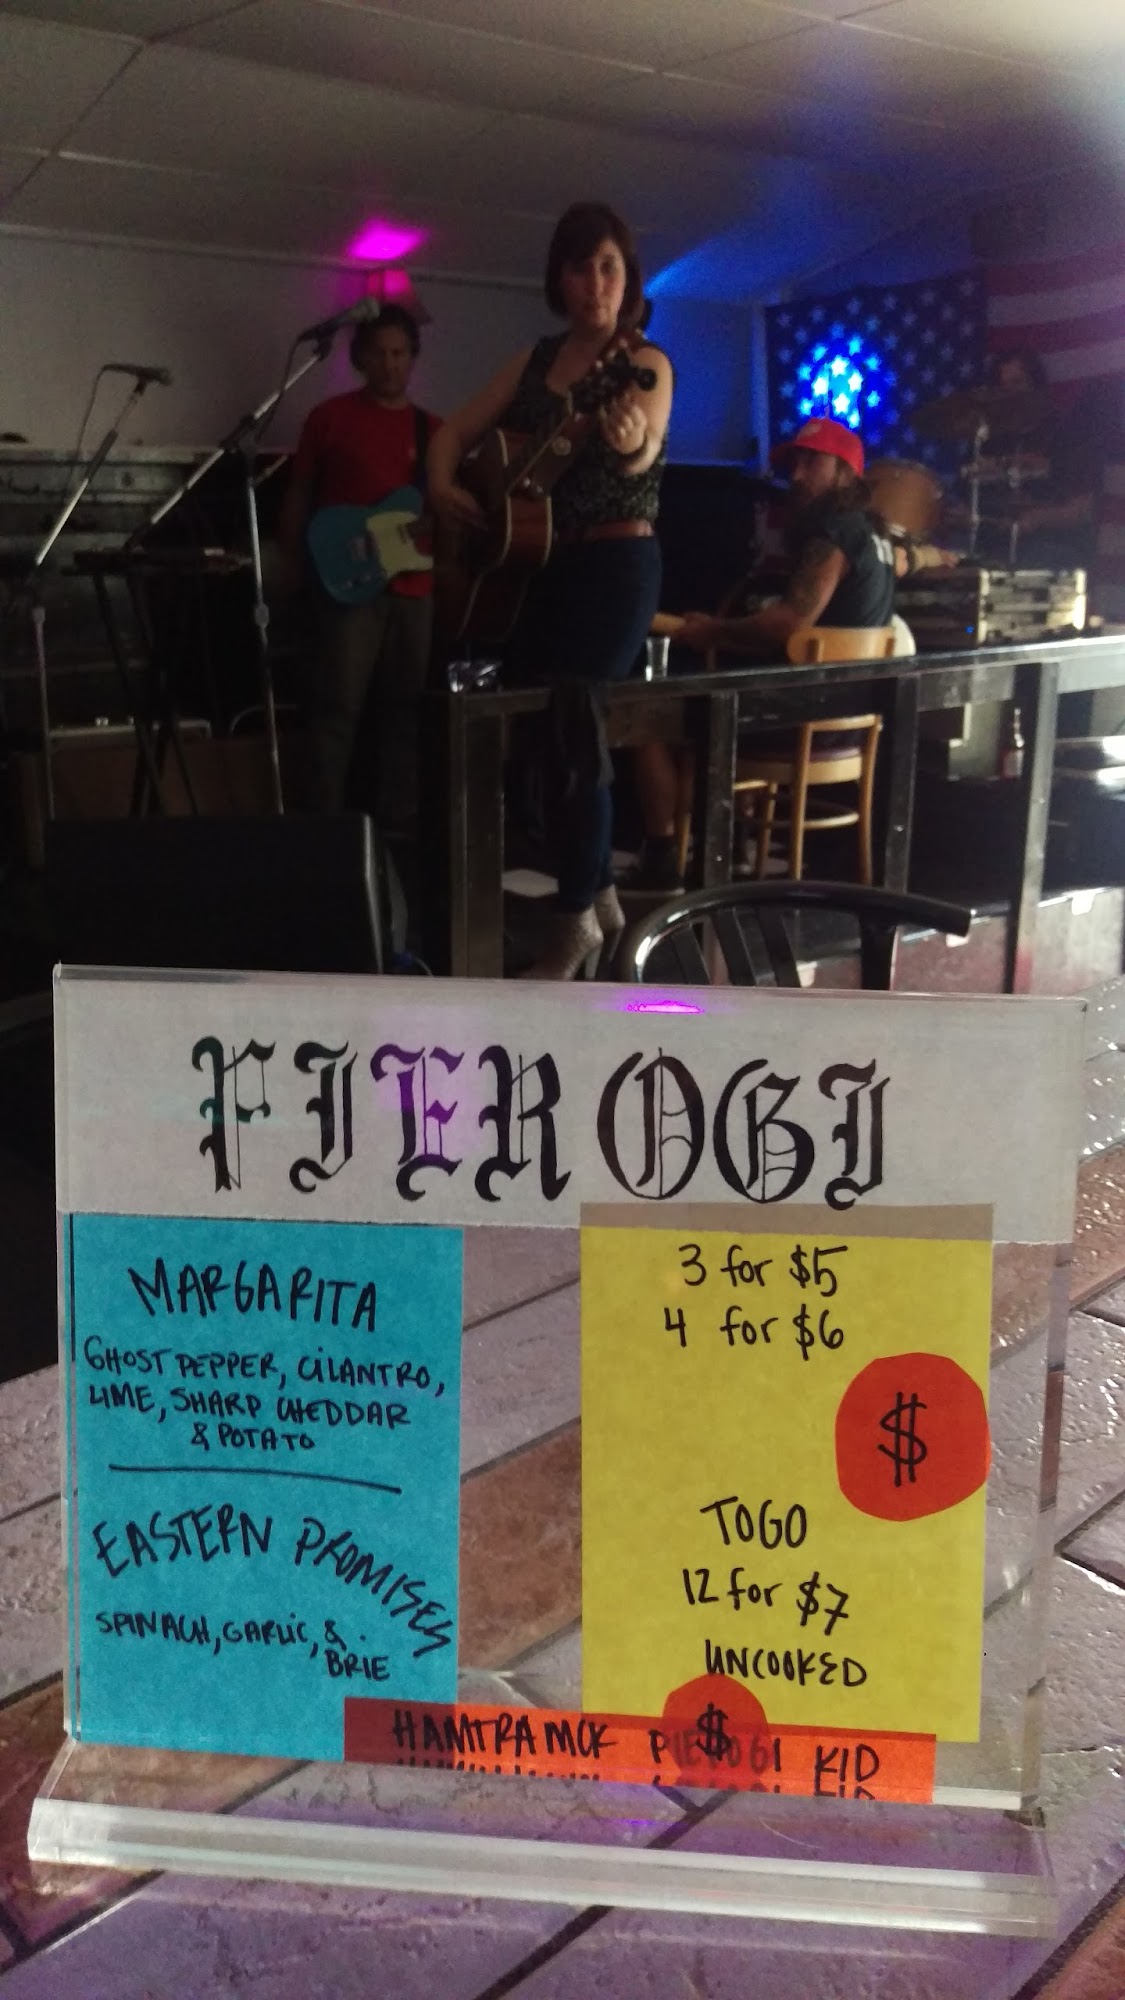 PIEROGI
MARGARITA
GHOST PEPPER, CILANTRO,
LIME, SHARP CHEDDAR
& POTATO
EASTERN PROMISES
SPINACH, GARLIC, &
BRIE
3 for $5
4 for $6
$
TOGO
12 for $7
UNCOOKED
$
HAMTRAMCK PIEROGI KID